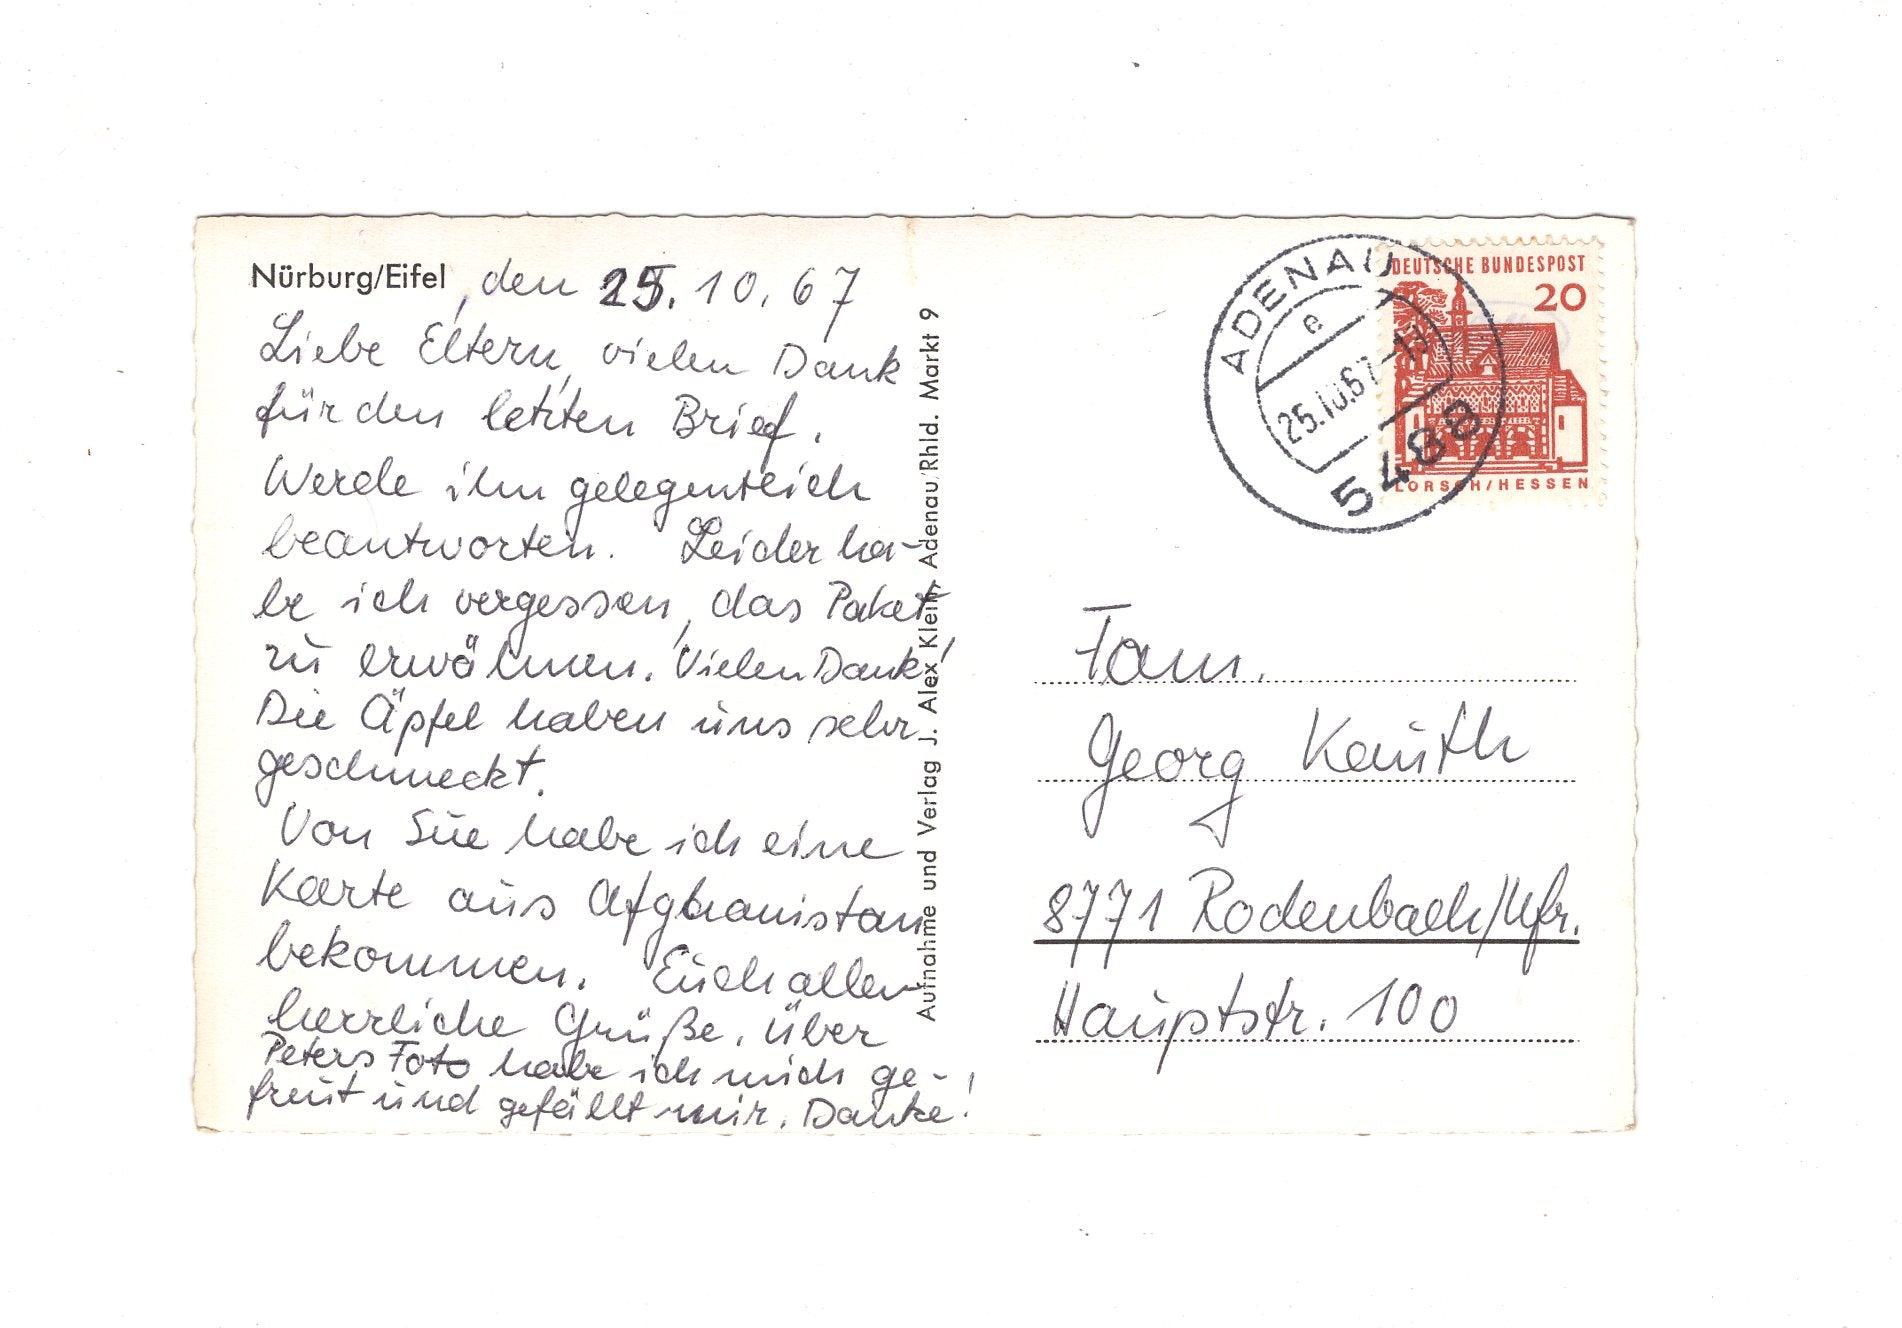 Nürburg/Eifel, den 25.10.67
Liebe Eltern, vielen Dank
für den letzten Brief.
Werde ihn gelegentlich
beantworten. Leider ha-
be ich vergessen, das Paket
zu erwähnen. Vielen Dank!
Die Äpfel haben uns sehr
geschmeckt.
Von Sue habe ich eine
Karte aus Afghanistan
bekommen. Euch allen
herzliche Grüße. Über
Peters Foto habe ich mich ge-
freut und gefällt mir. Danke!
Aufnahme und Verlag J. Alex Klein, Adenau/Rhld. Markt 9
ADENAU
e
25.10.67
5488
DEUTSCHE BUNDESPOST
20
LORSCH/HESSEN
Fam.
Georg Kauth
8771 Rodenbach/Ufr.
Hauptstr. 100